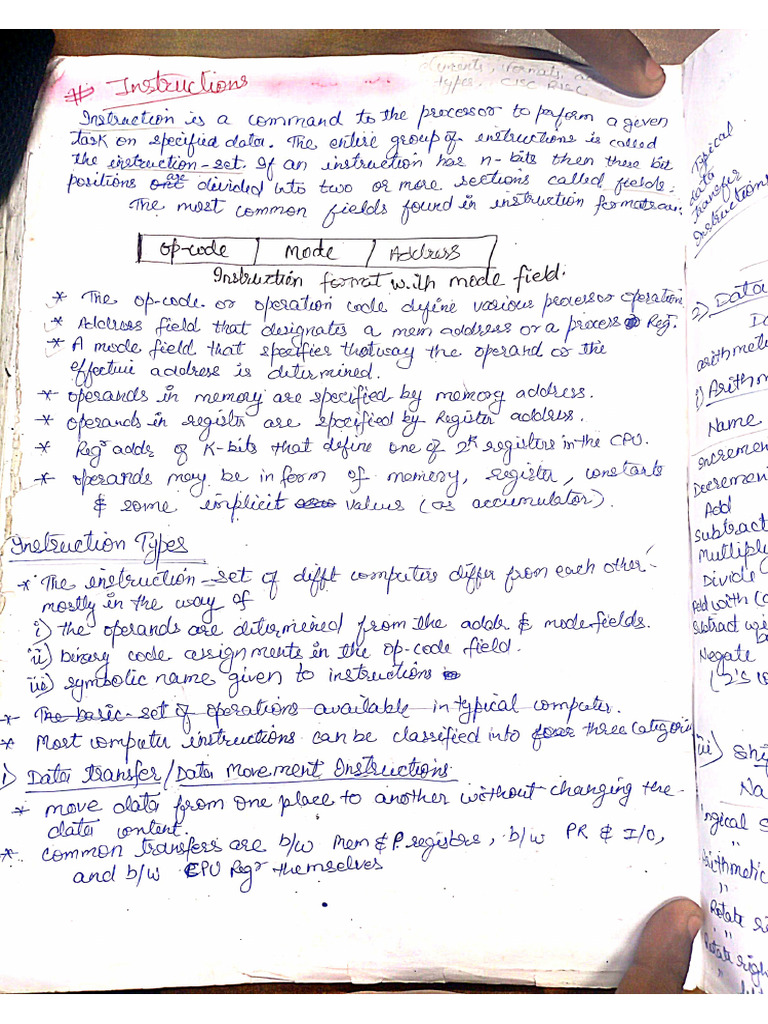 # Instructions
types, CISC RISC
Instruction is a command to the processor to perform a given
task on specified data. The entire group of instructions is called
the instruction-set. If an instruction has n-bits then these bit
positions are divided into two or more sections called fields.
The most common fields found in instruction format are:
op-code | Mode | Address
Instruction format with mode field.
* The op-code or operation code define various processor operation
* Address field that designates a mem address or a process Reg.
* A mode field that specifies that way the operand or the
effective address is determined.
* operands in memory are specified by memory address.
* operands in register are specified by Register address.
* Regr addr of K-bits that define one of 2^k registers in the CPU.
* operands may be in form of memory, register, constants
& some implicit values (as accumulator).
Instruction Types
* The instruction-set of difft computers differ from each other
mostly in the way of
i) the operands are determined from the addr & mode fields.
ii) binary code assignments in the op-code field.
iii) symbolic name given to instructions
* The basic set of operations available in typical computer.
* Most computer instructions can be classified into four three categories
i) Data transfer/Data Movement Instructions
* move data from one place to another without changing the
data content.
* common transfers are b/w Mem & P. registers, b/w PR & I/O,
and b/w CPU Regr themselves
Typical
data
transfer
Instructions
2) Data
arithmet
i) Arithm
Name
Incremen
Decremen
Add
Subtract
Multiply
Divide
Add with (c
Subtract wi
Negate
(2's co
iii) Shi
Na
Logical s
Arithmetic
"
Rotate ri
"
Rotate righ
"